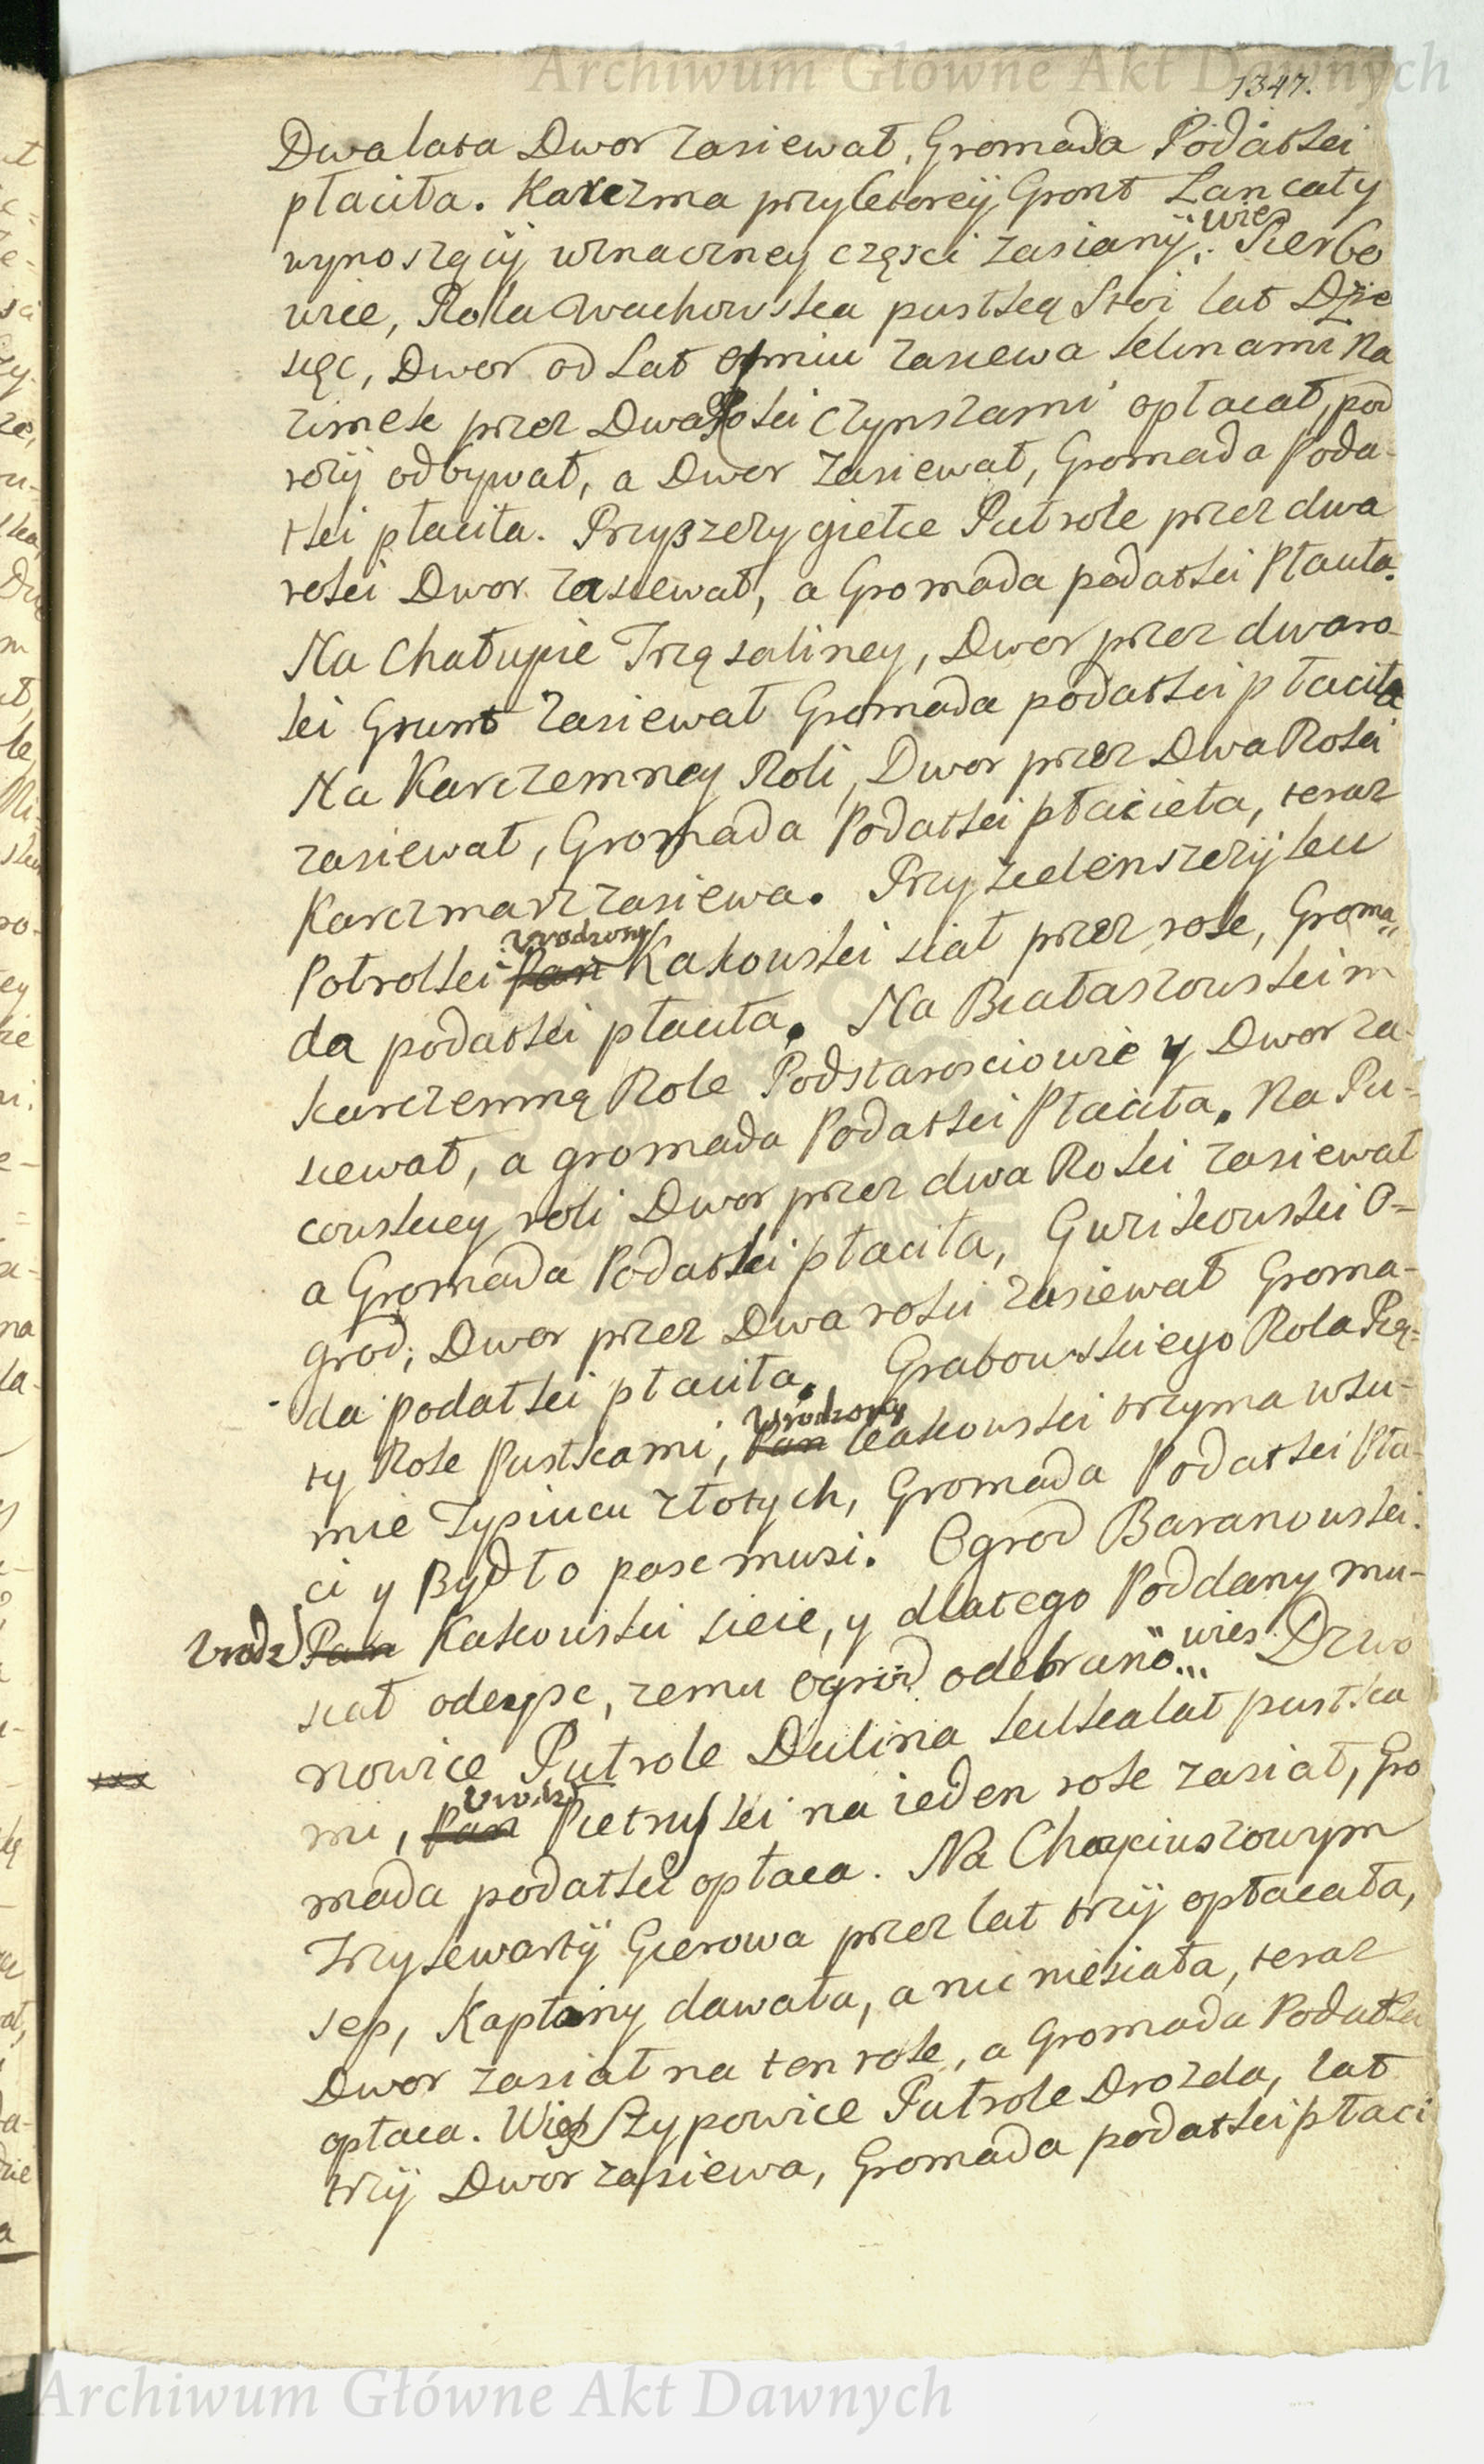 Archiwum Główne Akt Dawnych
1347.
Dwa lata Dwor zasiewał, Gromada Podatki
płaciła. Karczma przy ktorey Gront Łan cały
wynoszący wznaczney części zasiany. wieś Sierbo
wice, Rola Wachowska pustką stoi lat Dzie
sięć, Dwor od Lat ośmiu zasiewa klinami Na
zimek przez Dwa Roki czynszami opłacał, pod
roży odbywał, a Dwor zasiewał, Gromada Poda-
tki płaciła. Przy Szczygiełce Pułrole przez dwa
roki Dwor zasiewał, a Gromada podatki Płaciła.
Na Chałupie Trząsaliney, Dwor przez dwa ro-
ki Grunt zasiewał Gromada podatki płaciła
Na Karczemney Roli, Dwor przez Dwa Roki
zasiewał, Gromada Podatki płacieła, teraz
Karczmarz zasiewa. Przy Zielenszczyku
Potrolki Pan Urodzony Kakowski siał przez rok, Groma„
da podatki płaciła. Na Białaszowskim
karczemną Role Podstarosciowie y Dwor za-
siewał, a gromada Podatki Płaciła. Na Pu-
cowskiey roli Dwor przez dwa Roki zasiewał
a Gromada Podatki płaciła, Gwizkowski O-
grod, Dwor przez Dwa roki zasiewał Groma-
da podatki płaciła. Grabowskiego Rola Pią-
ty Rok Pustkami, Pan Urodzony Kakowski trzyma wsu-
mie Tysiucu złotych, Gromada Podatki Pła-
ci y Bydło pasc musi. Ogrod Baranowski.
Urodz Pan Kakowski sieie, y dlatego Poddany mu-
siał odeysc, zemu ogrod odebrano... wies Dzwo
nowice Pułrole Dulina kilkalat pustka
mi, Pan Urodz Pietruski na ieden rok zasiał, Gro
xxx
mada podatki opłaca. Na Chayciuszowym
Trzykwarty Gierowa przez lat trzy opłacała,
sep, Kapłony dawała, a nic niesiała, teraz
Dwor zasiał na ten rok, a Gromada Podatki
opłaca. Wieś Szypowice Pułrole Drozda, lat
trzy Dwor zasiewa, Gromada podatki płaci
Archiwum Główne Akt Dawnych